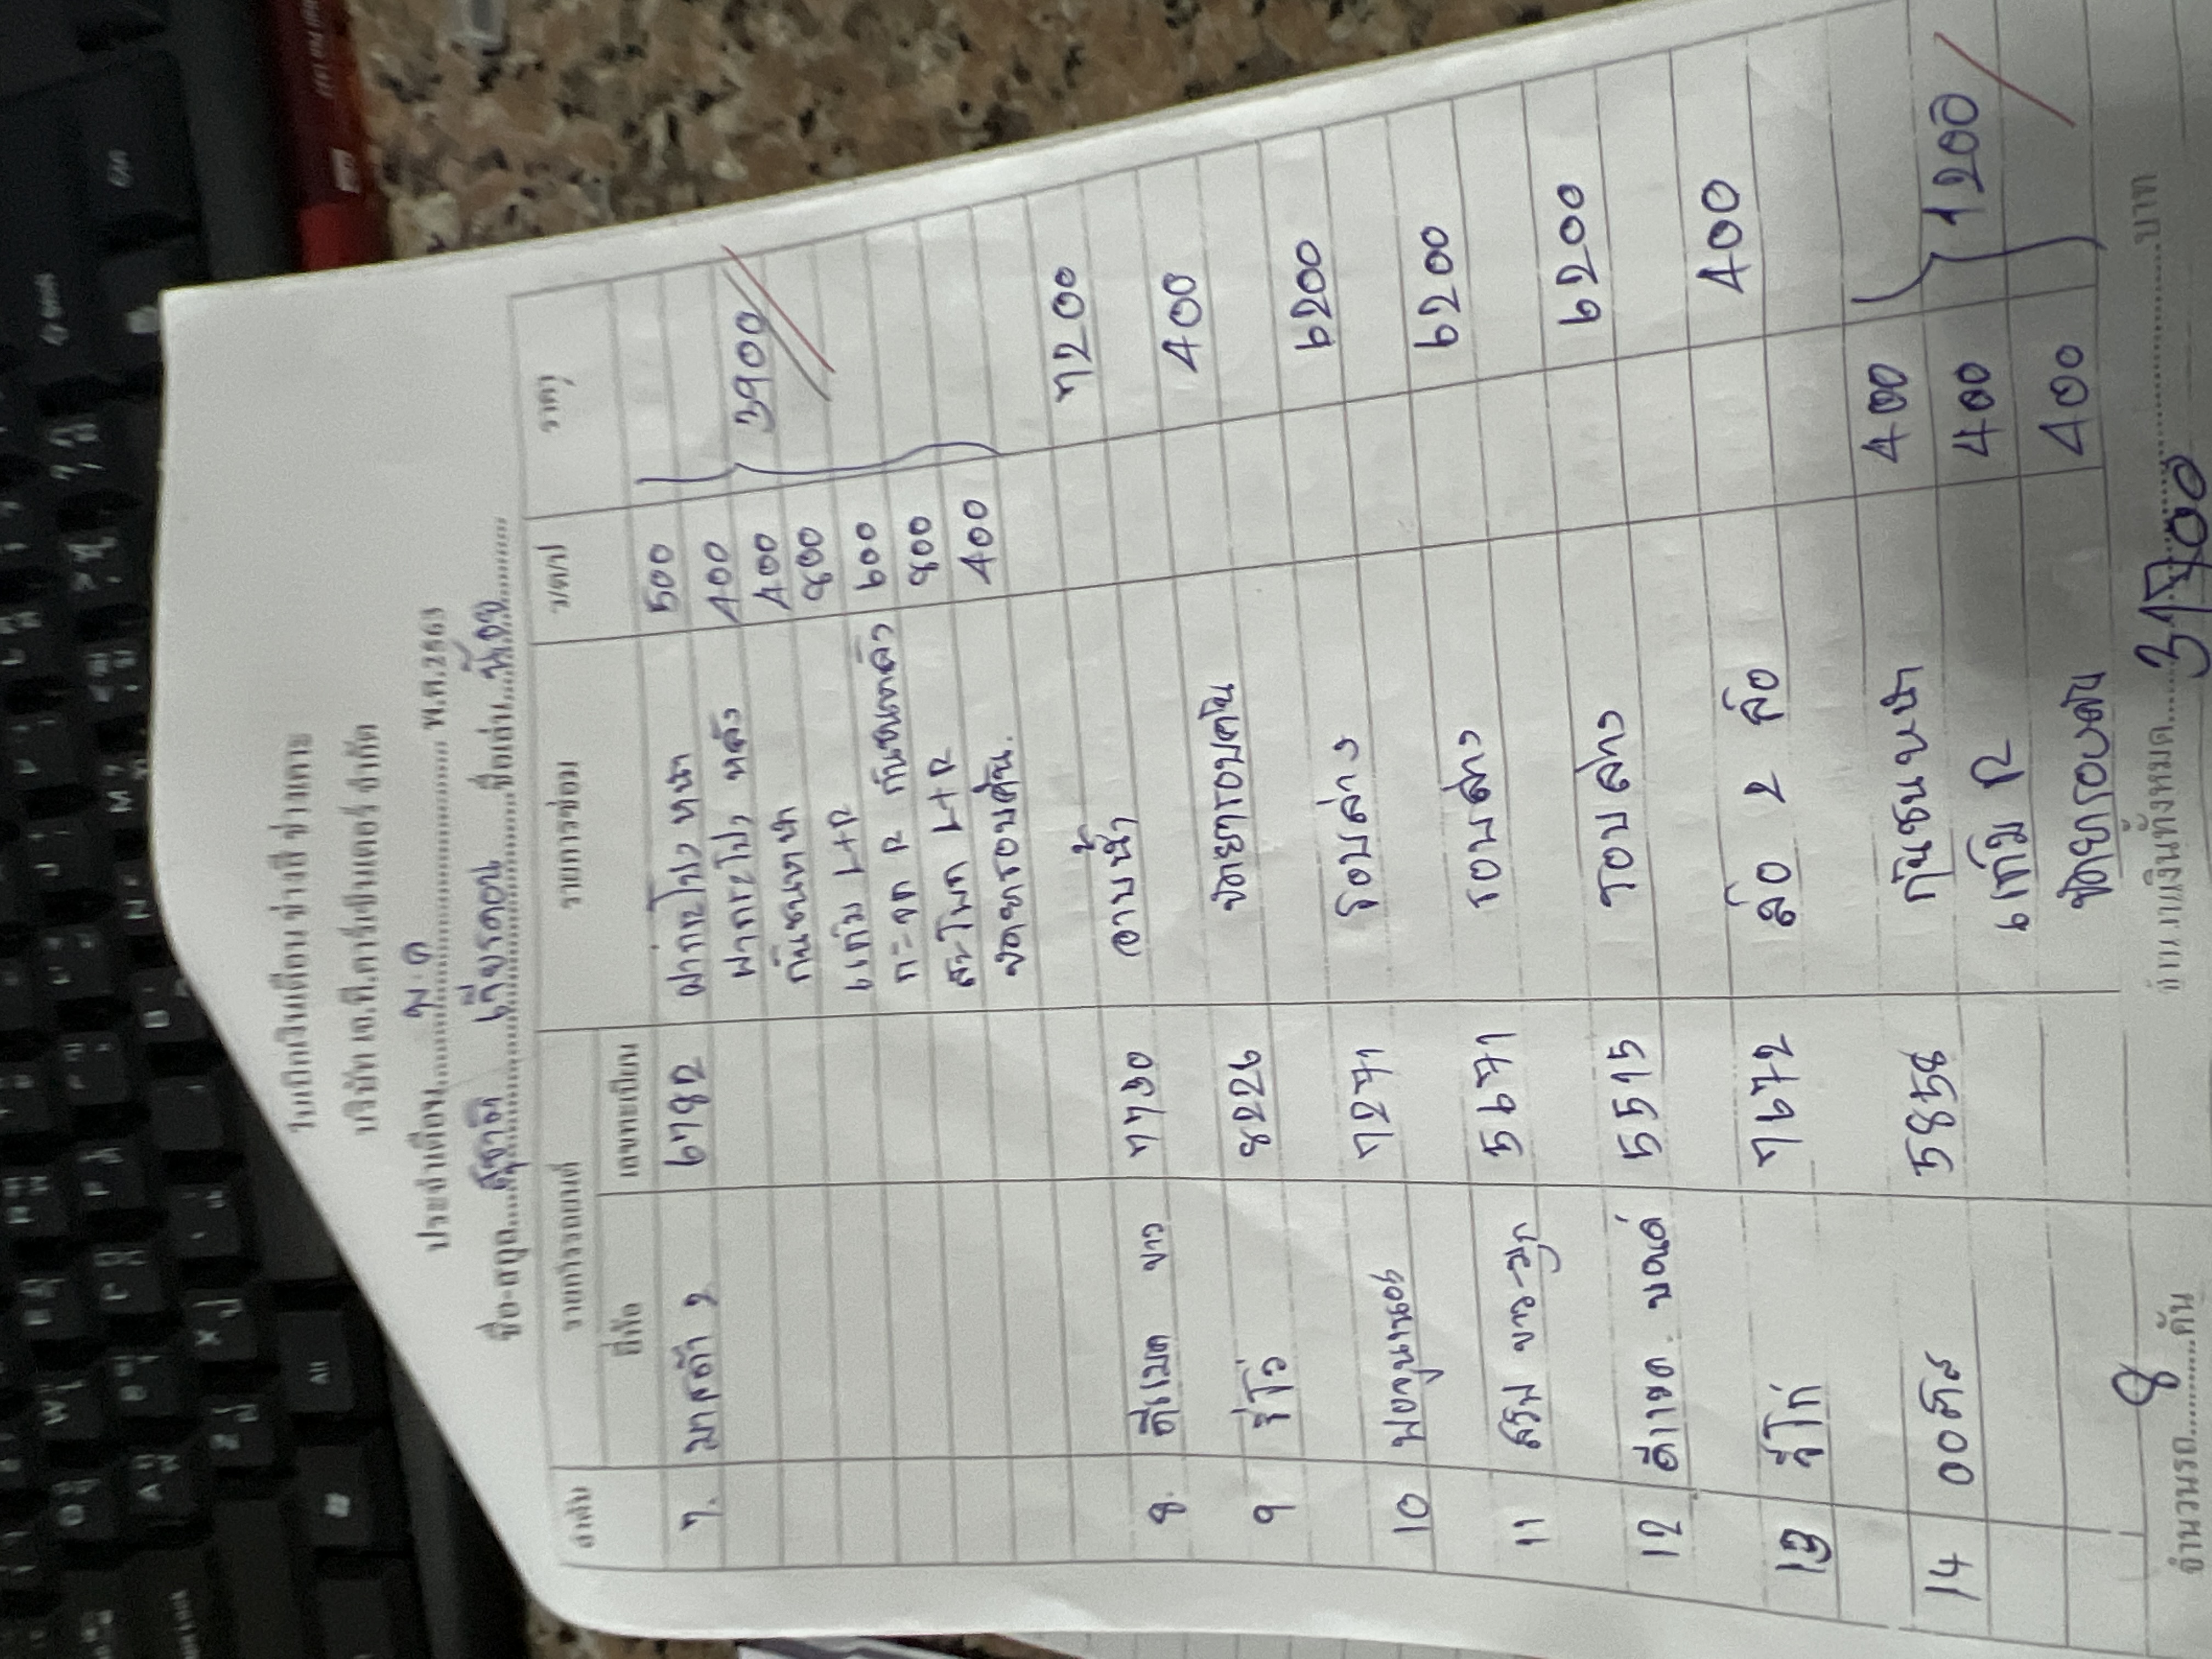 ใบเบิกเงินเดือน ช่างสี ช่างเคาะ
บริษัท เจ.ที.คาร์เซ็นเตอร์ จำกัด
ประจำเดือน......พ.ค......................... พ.ศ.2563
ชื่อ-สกุล....สุชาติ เรียบรดอน....ชื่อเล่น..น้อย..........
ลำดับ รายการรถยนต์ รายการซ่อม ว/ด/ป ราคา
ยี่ห้อ เลขทะเบียน
7. มาสด้า 2 6782 ฝากระโปรง หน้า 500
ฝากระโปรง หลัง 400 3900
กันชนหน้า 400
แก้ม L+R 800
กระจก R กันชนหลัง 600
สะโพก L+R 800
ขัดยารอบคัน. 400
8. ดีแมค ขาว 7730 อาบน้ำ 7200
9 รีโว่ 8226 ขัดยารอบคัน 400
10 ฟอจูนเนอร์ 7271 รอบล่าง 6200
11 ขาว-มุก 5671 รอบล่าง 6200
12 5515 รอบล่าง 6200
13 วีโก่ 7672 ล้อ 2 ล้อ 400
14 5858 กันชนหน้า 400
แก้ม R 400 1200
ขัดยารอบคัน 400
จำนวนรถ....8....คัน จำนวนเงินทั้งหมด....31700..................บาท